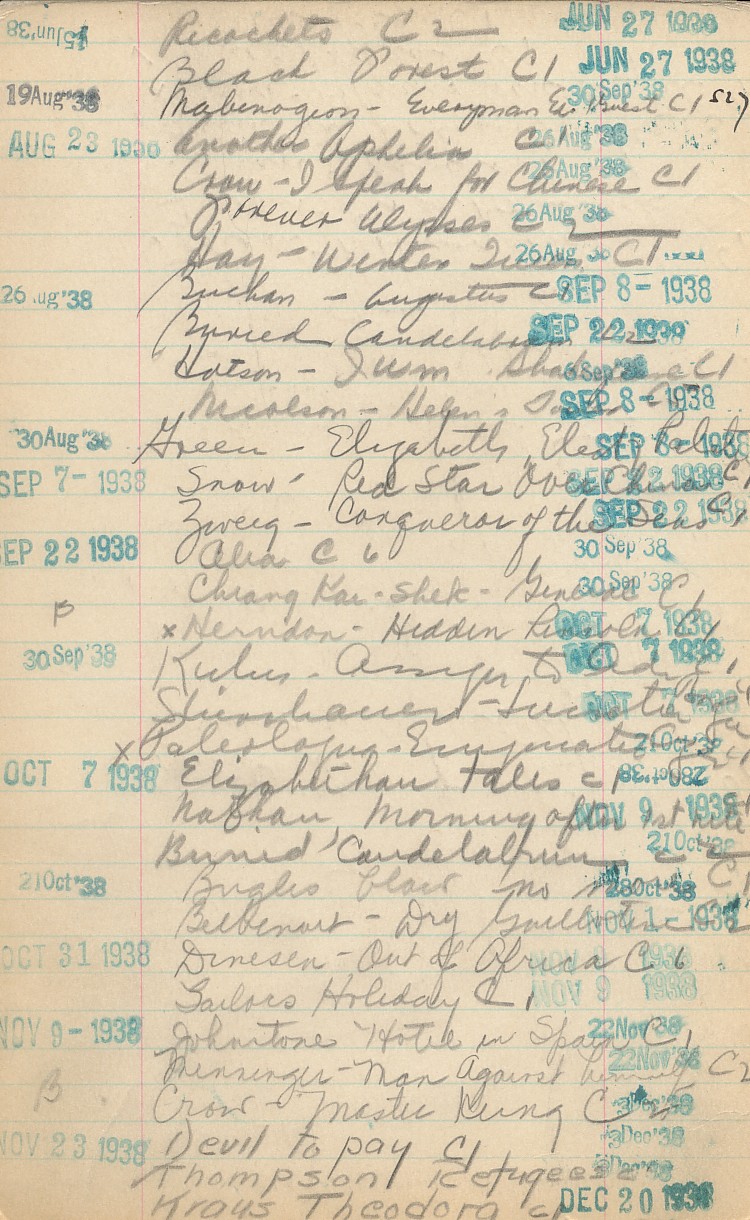 15 Jun '38 Ricochets C 2 JUN 27 1938
Black Forest C1 JUN 27 1938
19 Aug '38 Mabinogion - Everyman Ed. C1 30 Sep '38
AUG 23 1938 Another Ophelia C1 26 Aug '38
Crow - I speak for Chinese C1 26 Aug '38
Forever Ulysses C 2 26 Aug '38
Hay - Winter C1 26 Aug '38
26 Aug '38 Buchan - Augustus C1 SEP 8 - 1938
Buried Candelabrum C2 SEP 22 1938
Hotson - I, Wm Shakespeare C1 6 Sep '38
Nicolson - Helen's Tower SEP 8 - 1938
30 Aug '38 Green - Elizabeth, Elect. Palat. SEP 8 - 1938
SEP 7 - 1938 Snow - Red Star Over China C1 SEP 22 1938
Zweig - Conqueror of the Seas C1 SEP 22 1938
SEP 22 1938 C 6 30 Sep '38
Chiang Kai-Shek - General C1 30 Sep '38
B x Herndon - Hidden Lincoln C1 OCT 7 1938
30 Sep '38 C1 OCT 7 1938
OCT 7 1938
x Paleologue - Enigmatic 21 Oct '38
OCT 7 1938 Elizabethan tales C1 28 Oct '38
Nathan Morning after 1st nite NOV 9 1938
Buried Candelabrum C 2 21 Oct '38
21 Oct '38 Bugles blow no more C1 28 Oct '38
Belbenoit - Dry Guillotine C2 NOV 1 - 1938
OCT 31 1938 Dinesen - Out of Africa C 6 1938
Sailors Holiday C1 NOV 9 1938
NOV 9 - 1938 Johnstone Hotel in Spain C1 22 Nov '38
Menninger - Man Against himself C2 22 Nov '38
B Crow - Master Kung C 2 3 Dec '38
NOV 23 1938 Devil to pay C1 3 Dec '38
Thompson Refugees Dec '38
Kraus Theodora C1 DEC 20 1938